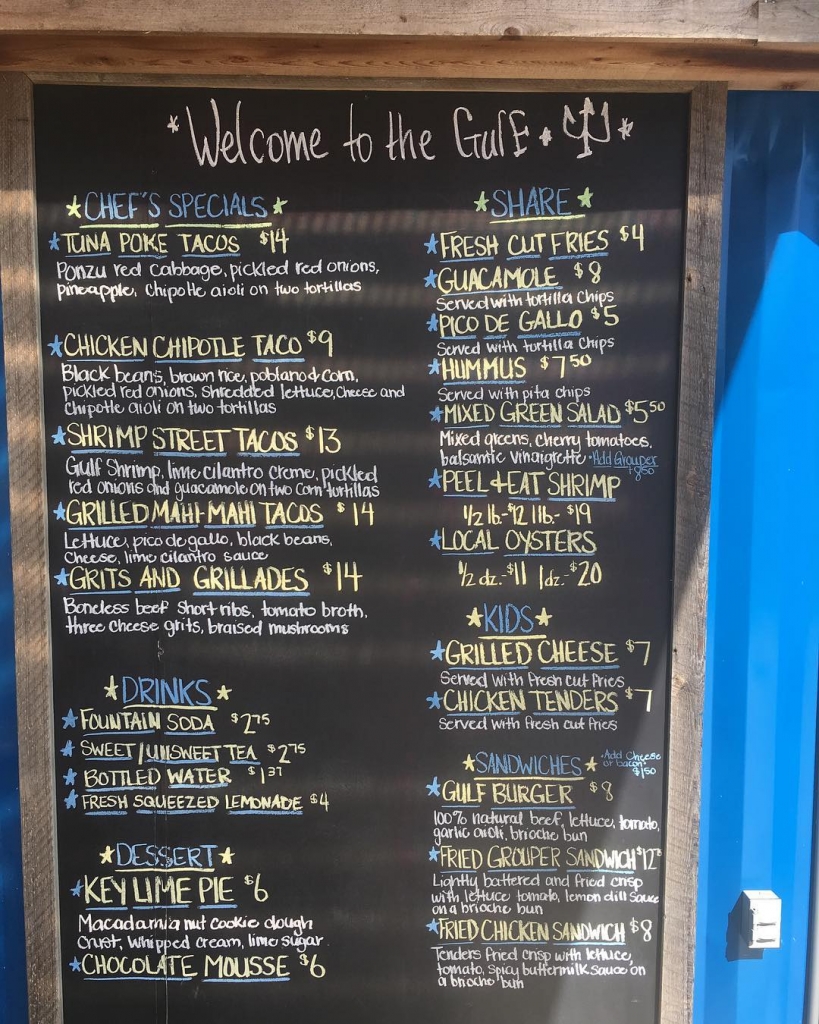 *Welcome to the Gulf*
CHEF'S SPECIALS
TUNA POKE TACOS $14
Ponzu red cabbage, pickled red onions,
pineapple, chipotle aioli on two tortillas
CHICKEN CHIPOTLE TACO $9
Black beans, brown rice, poblano & corn,
pickled red onions, shredded lettuce, cheese and
chipotle aioli on two tortillas
SHRIMP STREET TACOS $13
Gulf Shrimp, lime cilantro creme, pickled
red onions and guacamole on two corn tortillas
GRILLED MAHI-MAHI TACOS $14
Lettuce, pico de gallo, black beans,
cheese, lime cilantro sauce
GRITS AND GRILLADES $14
Boneless beef short ribs, tomato broth,
three cheese grits, braised mushrooms
DRINKS
FOUNTAIN SODA $2.75
SWEET/UNSWEET TEA $2.75
BOTTLED WATER $1.37
FRESH SQUEEZED LEMONADE $4
DESSERT
KEY LIME PIE $6
Macadamia nut cookie dough
crust, whipped cream, lime sugar
CHOCOLATE MOUSSE $6
SHARE
FRESH CUT FRIES $4
GUACAMOLE $8
Served with tortilla chips
PICO DE GALLO $5
Served with tortilla chips
HUMMUS $7.50
Served with pita chips
MIXED GREEN SALAD $5.50
Mixed greens, cherry tomatoes,
balsamic vinaigrette • Add Grouper
+8.50
PEEL + EAT SHRIMP
1/2 lb.-$12 1 lb.-$19
LOCAL OYSTERS
1/2 dz.-$11 1 dz.-$20
KIDS
GRILLED CHEESE $7
Served with fresh cut fries
CHICKEN TENDERS $7
Served with fresh cut fries
SANDWICHES
Add Cheese
or bacon
$1.50
GULF BURGER $8
100% natural beef, lettuce, tomato,
garlic aioli, brioche bun
FRIED GROUPER SANDWICH
Lightly battered and fried crisp
with lettuce tomato, lemon dill sauce
on a brioche bun
FRIED CHICKEN SANDWICH $8
Tenders fried crisp with lettuce,
tomato, spicy buttermilk sauce on
a brioche bun